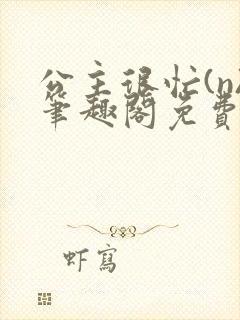 公主很忙(n
笔趣阁免费
虾写